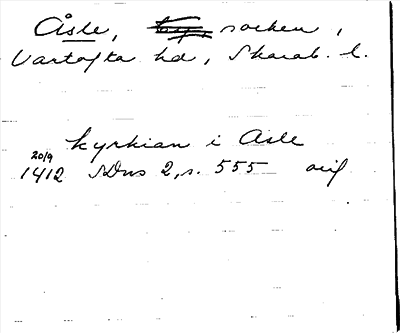 Åsle, socken,
Vartofta hd, Skarab. l.
kyrkian i Asle
20/9
1412 SDns 2, s. 555 orig